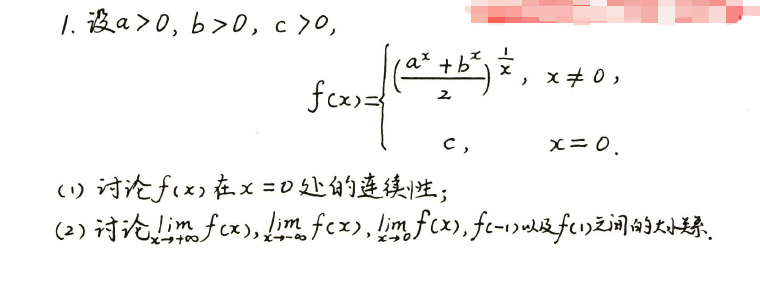 1. 设a>0, b>0, c>0,
f(x)={ ((a^x+b^x)/2)^(1/x), x≠0,
c, x=0.
(1) 讨论f(x)在x=0处的连续性;
(2) 讨论lim_{x→+∞} f(x), lim_{x→-∞} f(x), lim_{x→0} f(x), f(-1)以及f(1)之间的大小关系.